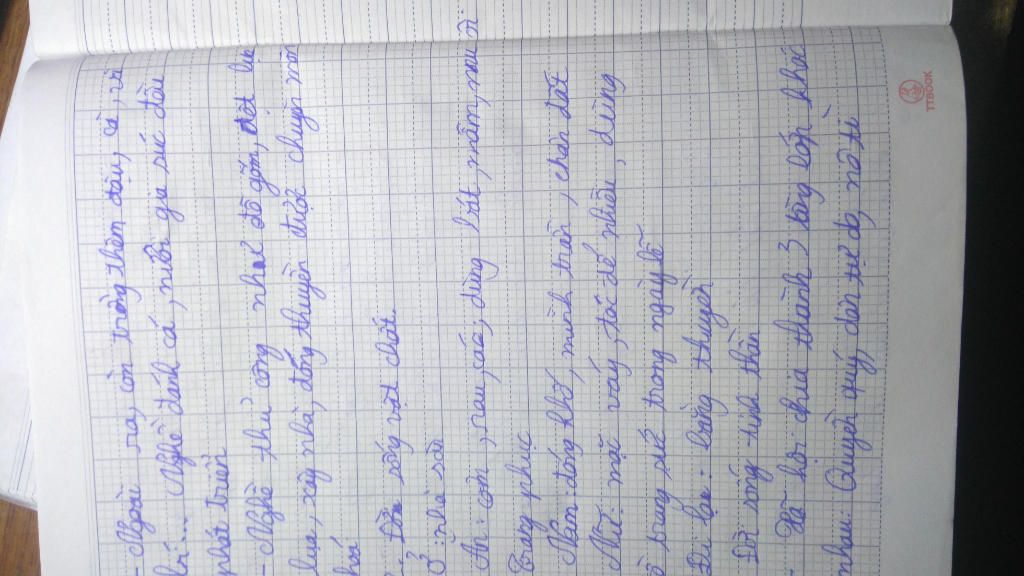 - Ngoài ra, còn trồng thêm đậu, cà, và
bí.... Nghề đánh cá, nuôi gia súc đều
phát triển
- Nghề thủ công như đồ gốm, dệt lụa
lụa, xây nhà, đóng thuyền được chuyên môn
hoá
Đời sống vật chất
Ở: nhà sàn
Ăn: cơm, rau, cá; dùng bát, mâm, muôi
Trang phục
Nam: đóng khố, mình trần, chân đất
Nữ: mặc váy, tóc để nhiều, dùng
đồ trang sức trong ngày lễ
Đi lại: bằng thuyền
Đời sống tinh thần
- Xã hội chia thành 3 tầng lớp khác
nhau: Quyền quý, dân tự do, nô tì
TTBOOK